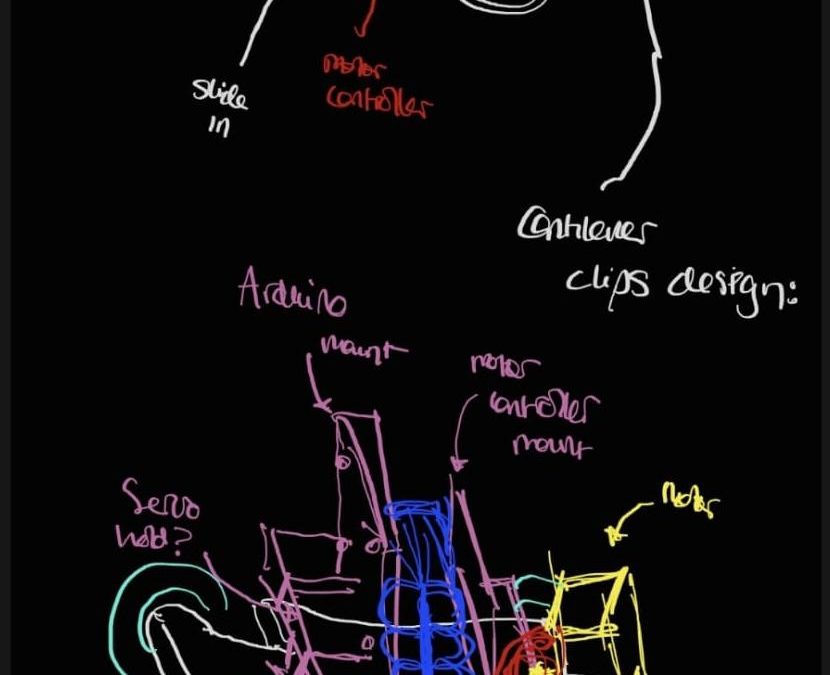 Slide
in
motor
controller
Cantilever
clips design:
Arduino
mount
motor
controller
mount
Servo
hold?
Motor